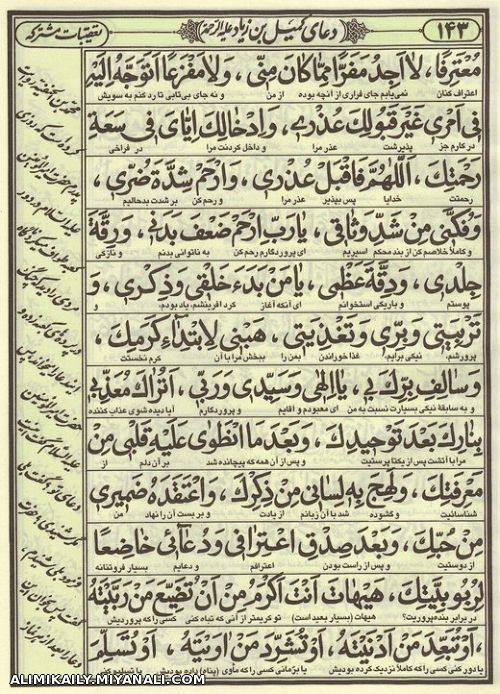 ۱۴۳
دعای کمیل بن زیاد علیه الرحمة
تعقیبات مشترکه
مُعْتَرِفًا، لَا اَجِدُ مَفَرًّا مِمَّا كَانَ مِنِّي، وَلَا مَفْزَعًا اَتَوَجَّهُ اِلَيْهِ
اعتراف کنان نمی‌یابم جای فراری از آنچه بوده از من و نه جای بی‌تابی تا رد کنم به سویش
فِي اَمْرِي غَيْرَ قَبُولِكَ عُذْرِي، وَاِدْخَالِكَ اِيَّايَ فِي سَعَةِ
در کارم جز پذیرشت عذر مرا و داخل کردنت مرا در فراخی
رَحْمَتِكَ، اَللّٰهُمَّ فَاقْبَلْ عُذْرِي، وَارْحَمْ شِدَّةَ ضُرِّي،
رحمتت خدایا پس بپذیر عذر مرا و رحم کن بر شدت بدحالیم
وَفُكَّنِي مِنْ شَدِّ وَثَاقِي، يَا رَبِّ ارْحَمْ ضَعْفَ بَدَنِي، وَرِقَّةَ
و کاملا خلاصم کن از بند محکم اسیریم ای پروردگارم رحم کن به ناتوانی بدنم و نازکی
جِلْدِي، وَدِقَّةَ عَظْمِي، يَا مَنْ بَدَءَ خَلْقِي وَذِكْرِي، وَ
پوستم و باریکی استخوانم ای آنکه آغاز کرد آفرینشم، یاد بودم، و
تَرْبِيَتِي وَبِرِّي وَتَغْذِيَتِي، هَبْنِي لِابْتِدَاءِ كَرَمِكَ،
پرورشم، نیکی برایم، غذا خوراندن بمن را ببخش مرا با آن کرم نخستت
وَسَالِفِ بِرِّكَ بِي، يَا اِلٰهِي وَسَيِّدِي وَرَبِّي، اَتُرَاكَ مُعَذِّبِي
و به سابقه نیکی بسیارت نسبت به من ای معبودم و آقایم و پروردگارم آیا دیده شوی عذاب کننده
بِنَارِكَ بَعْدَ تَوْحِيدِكَ، وَبَعْدَ مَا انْطَوٰى عَلَيْهِ قَلْبِي مِنْ
مرا با آتشت پس از یکتا پرستیت و پس از آن همه که پیچانده شد بر آن دلم از
مَعْرِفَتِكَ، وَلَهِجَ بِهِ لِسَانِي مِنْ ذِكْرِكَ، وَاعْتَقَدَهُ ضَمِيرِي
شناسائیت و گشوده شد با آن زبانم از یادت و بر بست آن را نهاد من
مِنْ حُبِّكَ، وَبَعْدَ صِدْقِ اعْتِرَافِي وَدُعَائِي خَاضِعًا
از دوستیت و پس از راست بودن اعترافم و دعایم بسیار فروتنانه
لِرُبُوبِيَّتِكَ، هَيْهَاتَ اَنْتَ اَكْرَمُ مِنْ اَنْ تُضَيِّعَ مَنْ رَبَّيْتَهُ
در برابر بنده‌پروریت؟ هیهات (بسیار بعید است) تو کریمتر از آنی که تباه کنی کسی را که پروردیش
، اَوْ تُبَعِّدَ مَنْ اَدْنَيْتَهُ، اَوْ تُشَرِّدَ مَنْ اٰوَيْتَهُ، اَوْ تُسَلِّمَ
یا دور کنی کسی را که کاملا نزدیک کرده بودیش یا برمانی کسی را که مأوی (پناه) داده بودیش یا تسلیم کنی
ALIMIKAILY.MIYANALI.COM